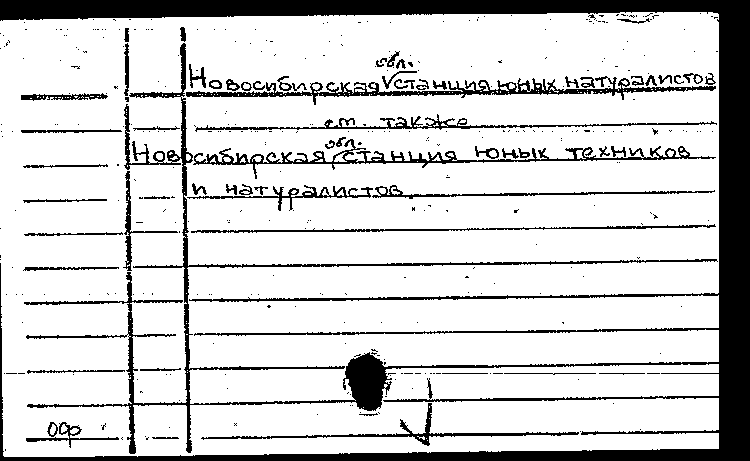 Новосибирская обл. станция юных натуралистов
см. также
Новосибирская обл. станция юных техников
и натуралистов
оср